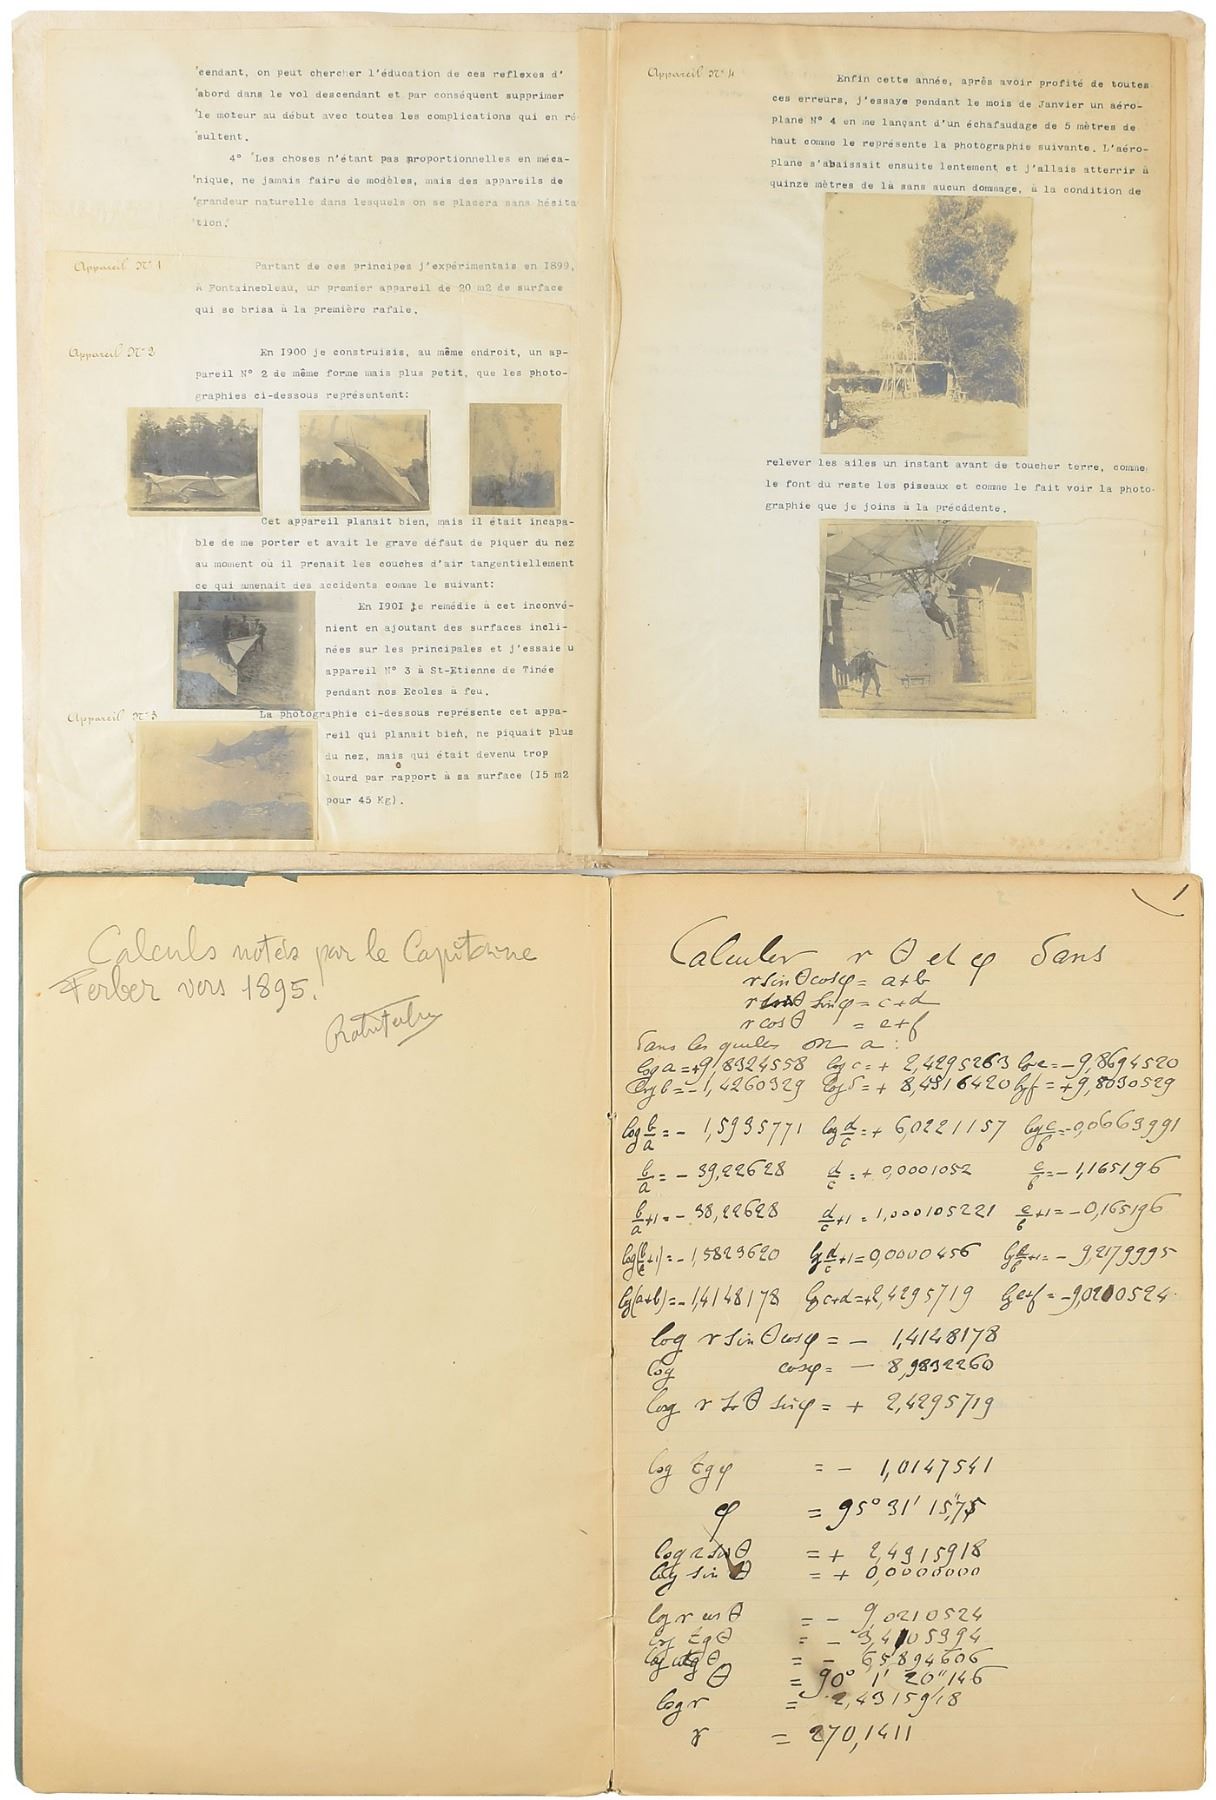 cendant, on peut chercher l'éducation de ces reflexes d'
abord dans le vol descendant et par conséquent supprimer
le moteur au début avec toutes les complications qui en ré
sultent.
4° "Les choses n'étant pas proportionnelles en méca-
nique, ne jamais faire de modèles, mais des appareils de
grandeur naturelle dans lesquels on se placera sans hésita
tion."
Appareil N° 1
Partant de ces principes j'expérimentais en 1899,
A Fontainebleau, un premier appareil de 20 m2 de surface
qui se brisa à la première rafale.
Appareil N° 2
En 1900 je construisis, au même endroit, un ap-
pareil N° 2 de même forme mais plus petit, que les photo-
graphies ci-dessous représentent:
Cet appareil planait bien, mais il était incapa-
ble de me porter et avait le grave défaut de piquer du nez
au moment où il prenait les couches d'air tangentiellement
ce qui amenait des accidents comme le suivant:
En 1901 je remédie à cet inconvé-
nient en ajoutant des surfaces incli-
nées sur les principales et j'essaie u
appareil N° 3 à St-Etienne de Tinée
pendant nos Ecoles à feu.
Appareil N° 3
La photographie ci-dessous représente cet appa-
reil qui planait bien, ne piquait plus
du nez, mais qui était devenu trop
lourd par rapport à sa surface (15 m2
pour 45 Kg).
Appareil N° 4
Enfin cette année, après avoir profité de toutes
ces erreurs, j'essaye pendant le mois de Janvier un aéro-
plane N° 4 en me lançant d'un échafaudage de 5 mètres de
haut comme le représente la photographie suivante. L'aéro-
plane s'abaissait ensuite lentement et j'allais atterrir à
quinze mètres de là sans aucun dommage, à la condition de
relever les ailes un instant avant de toucher terre, comme
le font du reste les oiseaux et comme le fait voir la photo-
graphie que je joins à la précédente.
Calculs notés par le Capitaine
Ferber vers 1895.
1
Calculer r θ et φ dans
r sin θ cos φ = a+b
r sin θ sin φ = c+d
r cos θ = e+f
dans lesquelles on a :
log a = +9,8324558 log c = + 2,4295263 log e = -9,8694520
log b = -1,4260329 log d = + 8,4516420 log f = +9,8030529
log b/a = - 1,5935771 log d/c = + 6,0221157 log e/f = -0,0663991
b/a = - 39,22628 d/c = + 0,0001052 e/f = - 1,165196
b/a +1 = - 38,22628 d/c +1 = 1,000105221 e/f +1 = - 0,165196
log(b/a +1) = - 1,5823620 log d/c +1 = 0,0000456 log e/f +1 = - 9,2179995
log(a+b) = - 1,4148178 log c+d = +2,4295719 log e+f = -9,0210524
log r sin θ cos φ = - 1,4148178
log cos φ = - 8,9832260
log r sin θ sin φ = + 2,4295719
log tg φ = - 1,0147541
φ = 95° 31' 15",75
log r sin θ = + 2,4315918
log sin θ = + 0,0000000
log r cos θ = - 9,0210524
log tg θ = - 3,4105394
log cotg θ = - 6,5894606
θ = 90° 1' 20"146
log r = 2,4315918
r = 270,1411